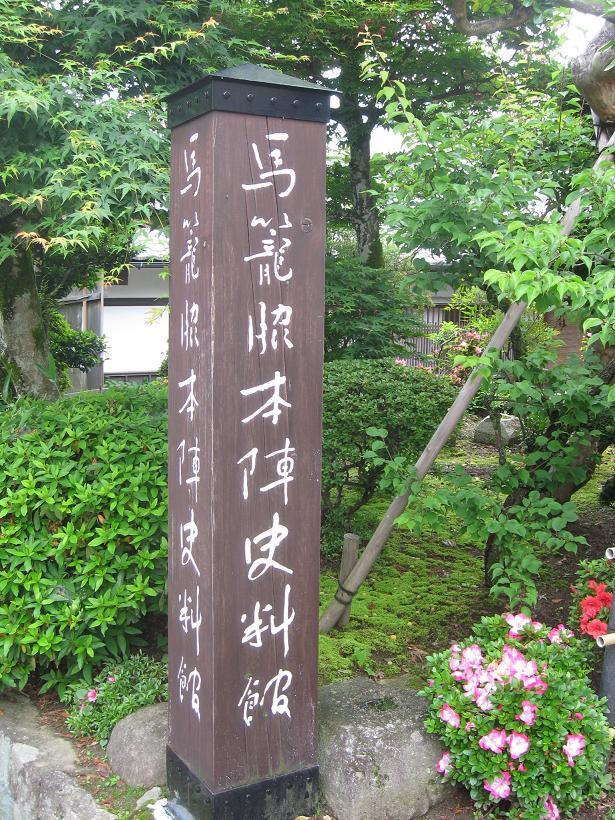 馬籠脇本陣史料館
馬籠脇本陣史料館